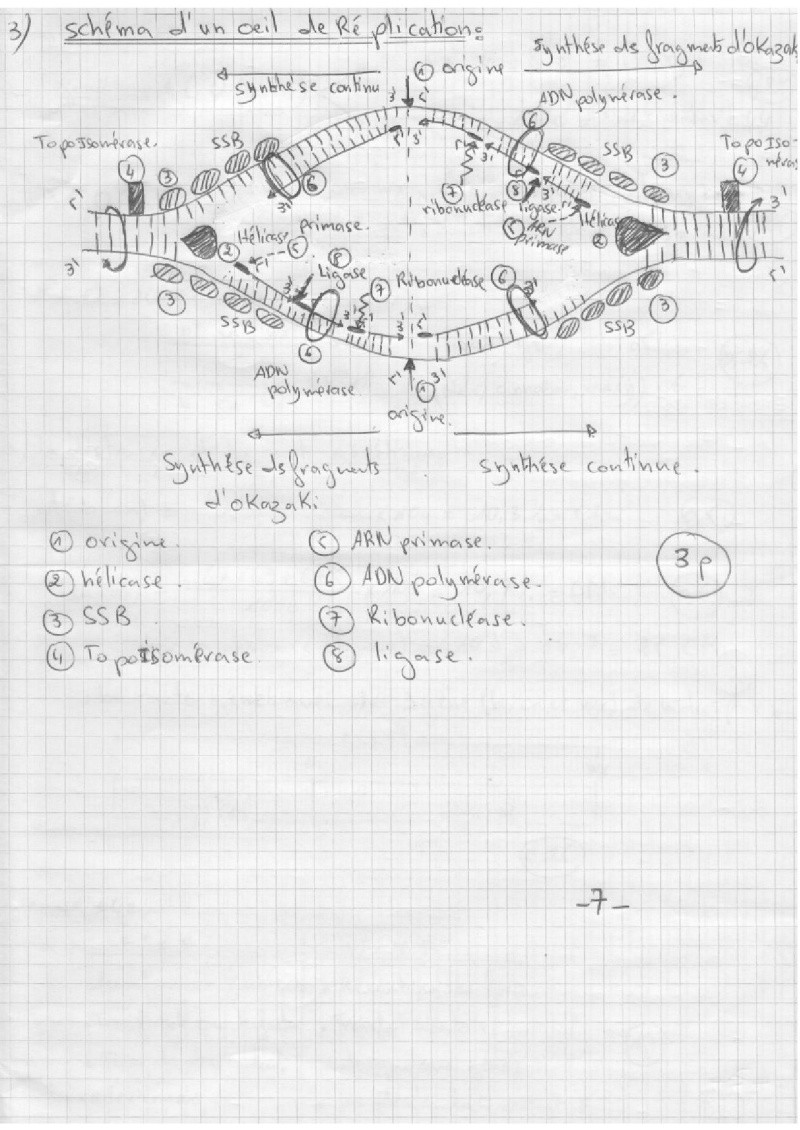 3) schéma d'un oeil de Réplication:
synthèse ds fragments d'Okazak
① origine
synthèse continu
ADN polymérase.
3' 5'
Topoisomérase.
SSB
⑥
SSB
Topoiso-
mérase
④ ③
③ ④
5' 3'
⑥
3'
⑦
ribonucléase
⑧
ligase.
3'
⑤ ARN
primase
Hélicase
②
3'
5'
3'
Hélicase
②
primase.
⑤
⑧
Ligase
⑦ Ribonucléase ⑥
3'
5'
③
SSB
3' 5'
SSB
③
⑥
ADN
polymérase.
5' 3'
①
origine.
Synthèse ds fragments
d'okazaki
synthèse continue.
① origine.
② hélicase.
③ SSB
④ Topoisomérase
⑤ ARN primase.
⑥ ADN polymérase.
⑦ Ribonucléase.
⑧ ligase.
3 p
-7-